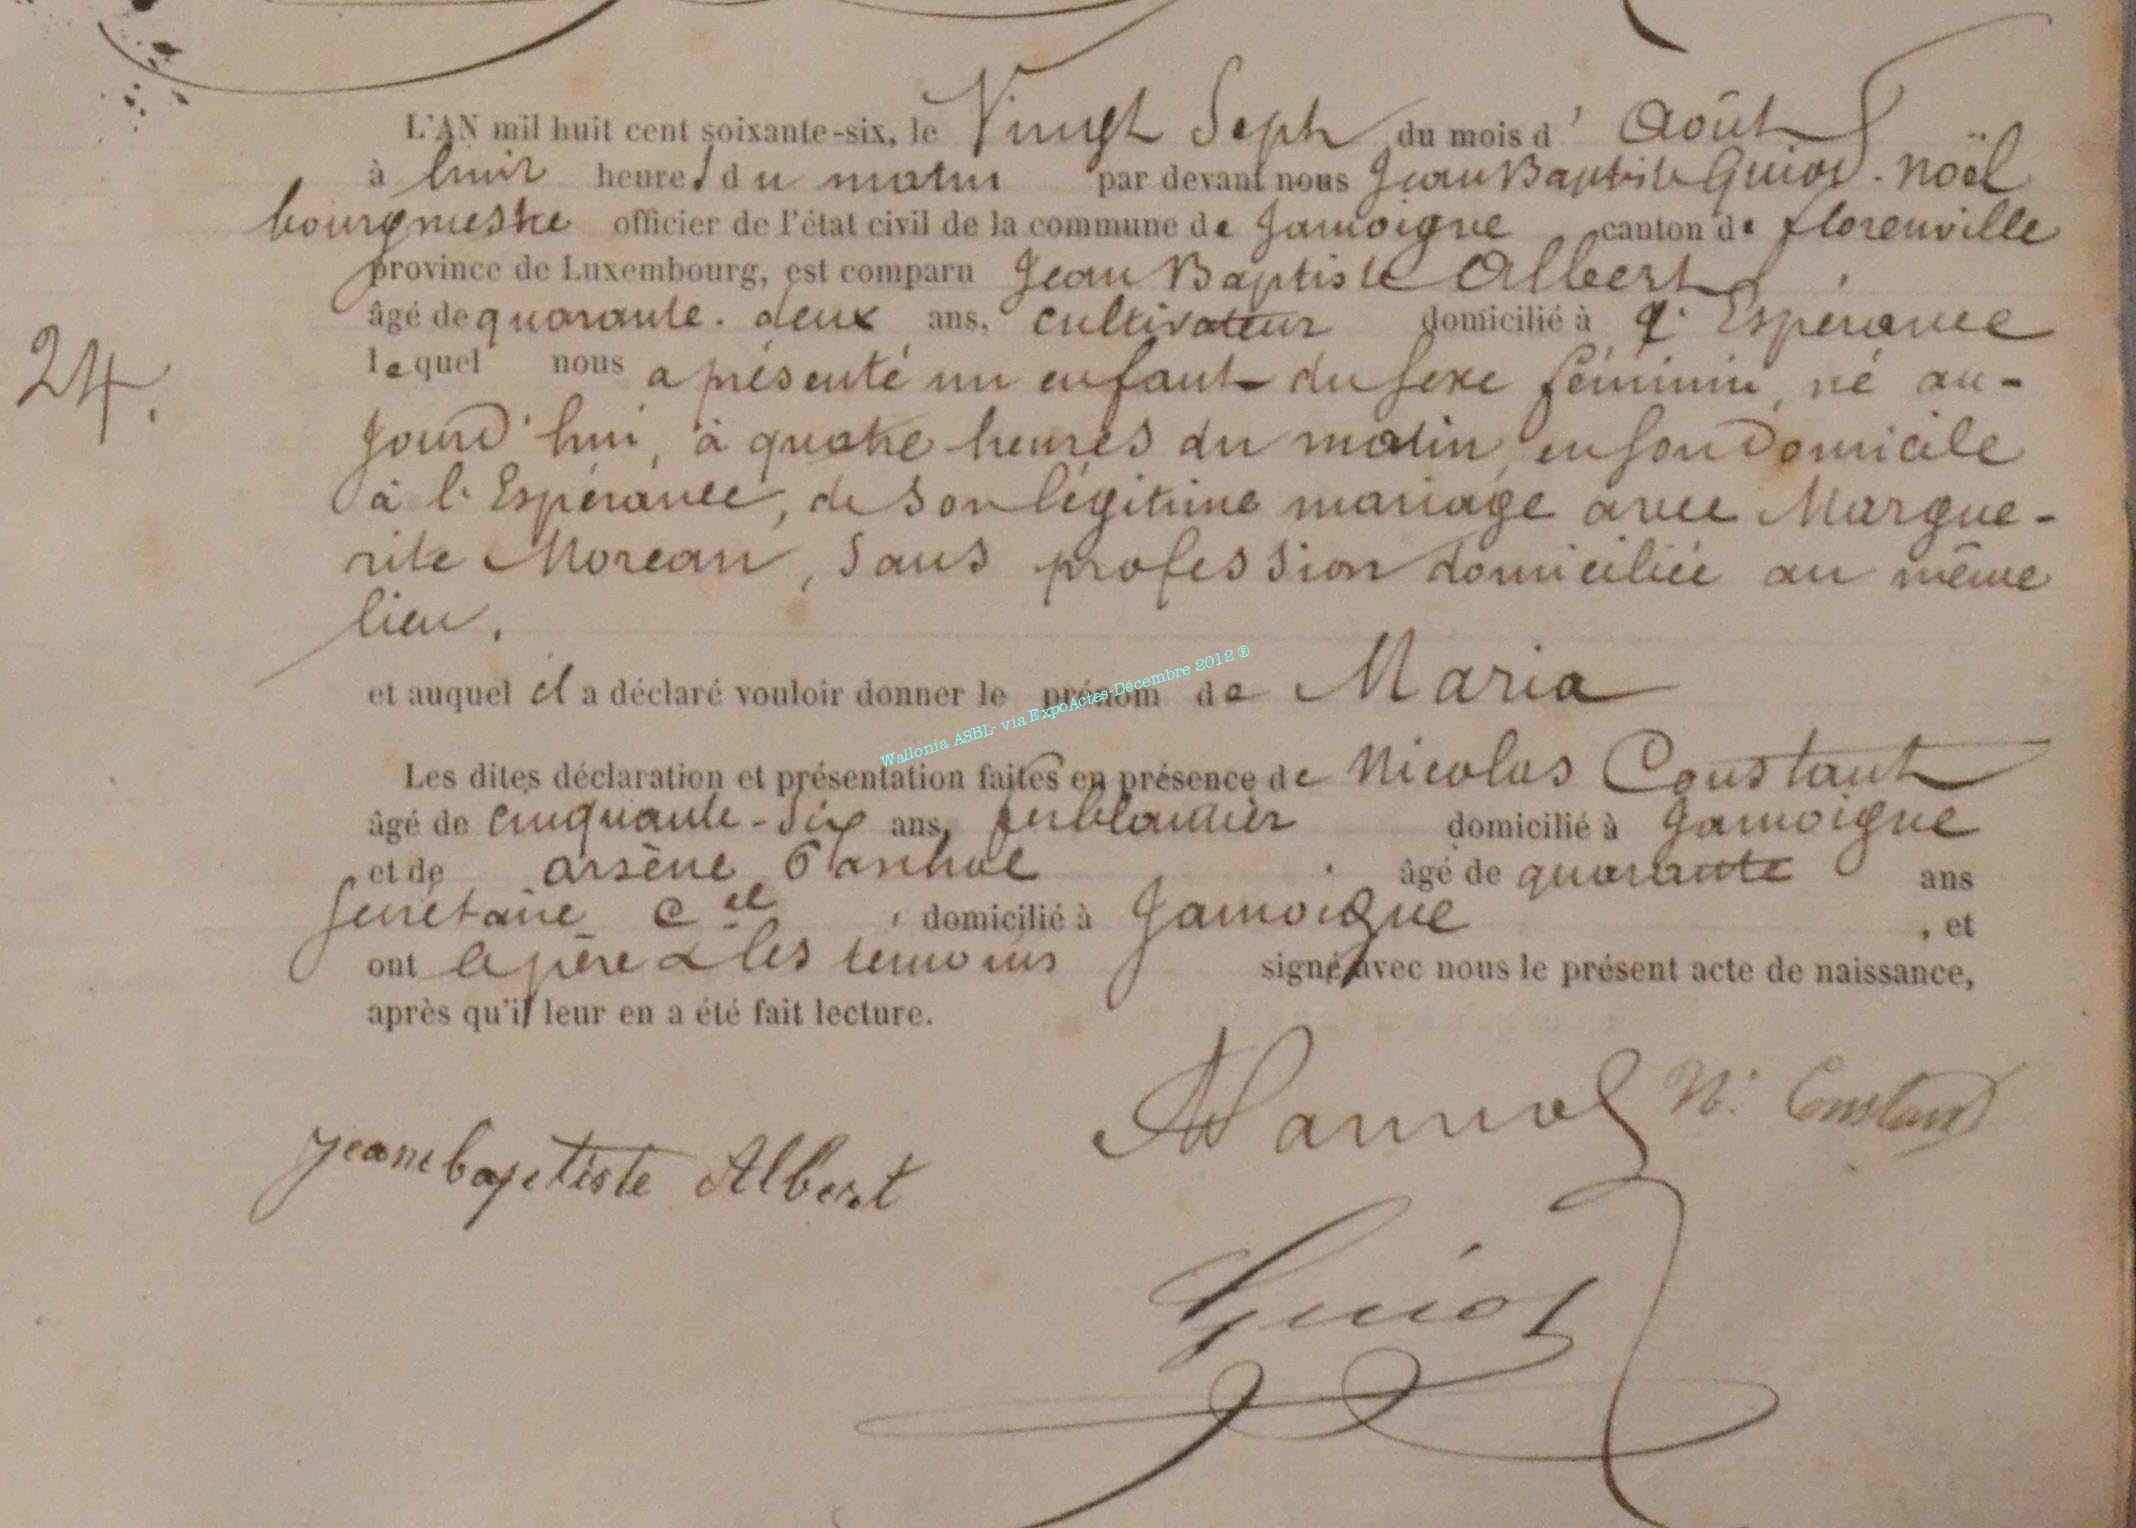 L'AN mil huit cent soixante-six, le Vingt Sept du mois d' Août
à huit heures du matin par devant nous Jean Baptiste Guiot-Noël
bourgmestre officier de l'état civil de la commune de Jamoigne canton de florenville
province de Luxembourg, est comparu Jean Baptiste Albert
âgé de quarante-deux ans, cultivateur domicilié à l'Espérance
24.
lequel nous a présenté un enfant du sexe féminin, né au-
jourd'hui, à quatre heures du matin, en son Domicile
à l'Espérance, de son légitime mariage avec Margue-
rite Moreau, Sans profession domiciliée au même
lieu.
et auquel il a déclaré vouloir donner le prénom de Maria
Wallonia ASBL- via ExpoActes-Décembre 2012 ®
Les dites déclaration et présentation faites en présence de Nicolas Constant
âgé de cinquante-six ans, ferblantier domicilié à Jamoigne
et de arsène âgé de quarante ans
secrétaire Cel domicilié à Jamoigne, et
ont le père & les temoins signé avec nous le présent acte de naissance,
après qu'il leur en a été fait lecture.
N. Constant
jeanebaptiste Albert
Guiot